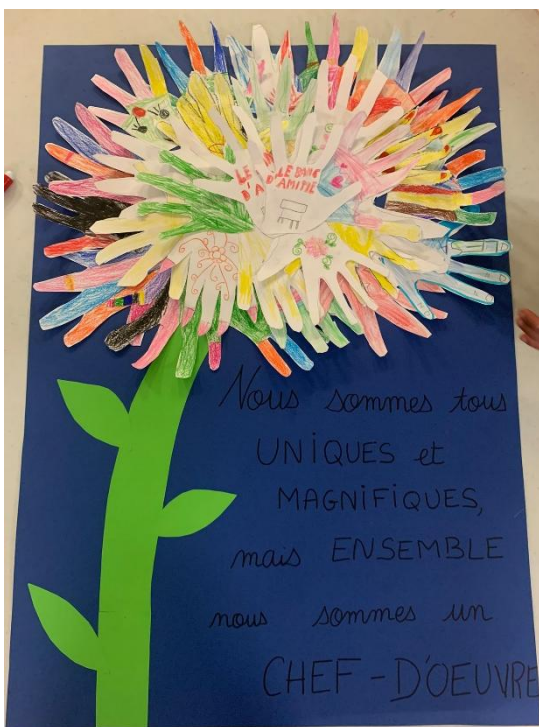 LE BANC
D'AMITIÉ
Nous sommes tous
UNIQUES et
MAGNIFIQUES,
mais ENSEMBLE
nous sommes un
CHEF-D'OEUVRE